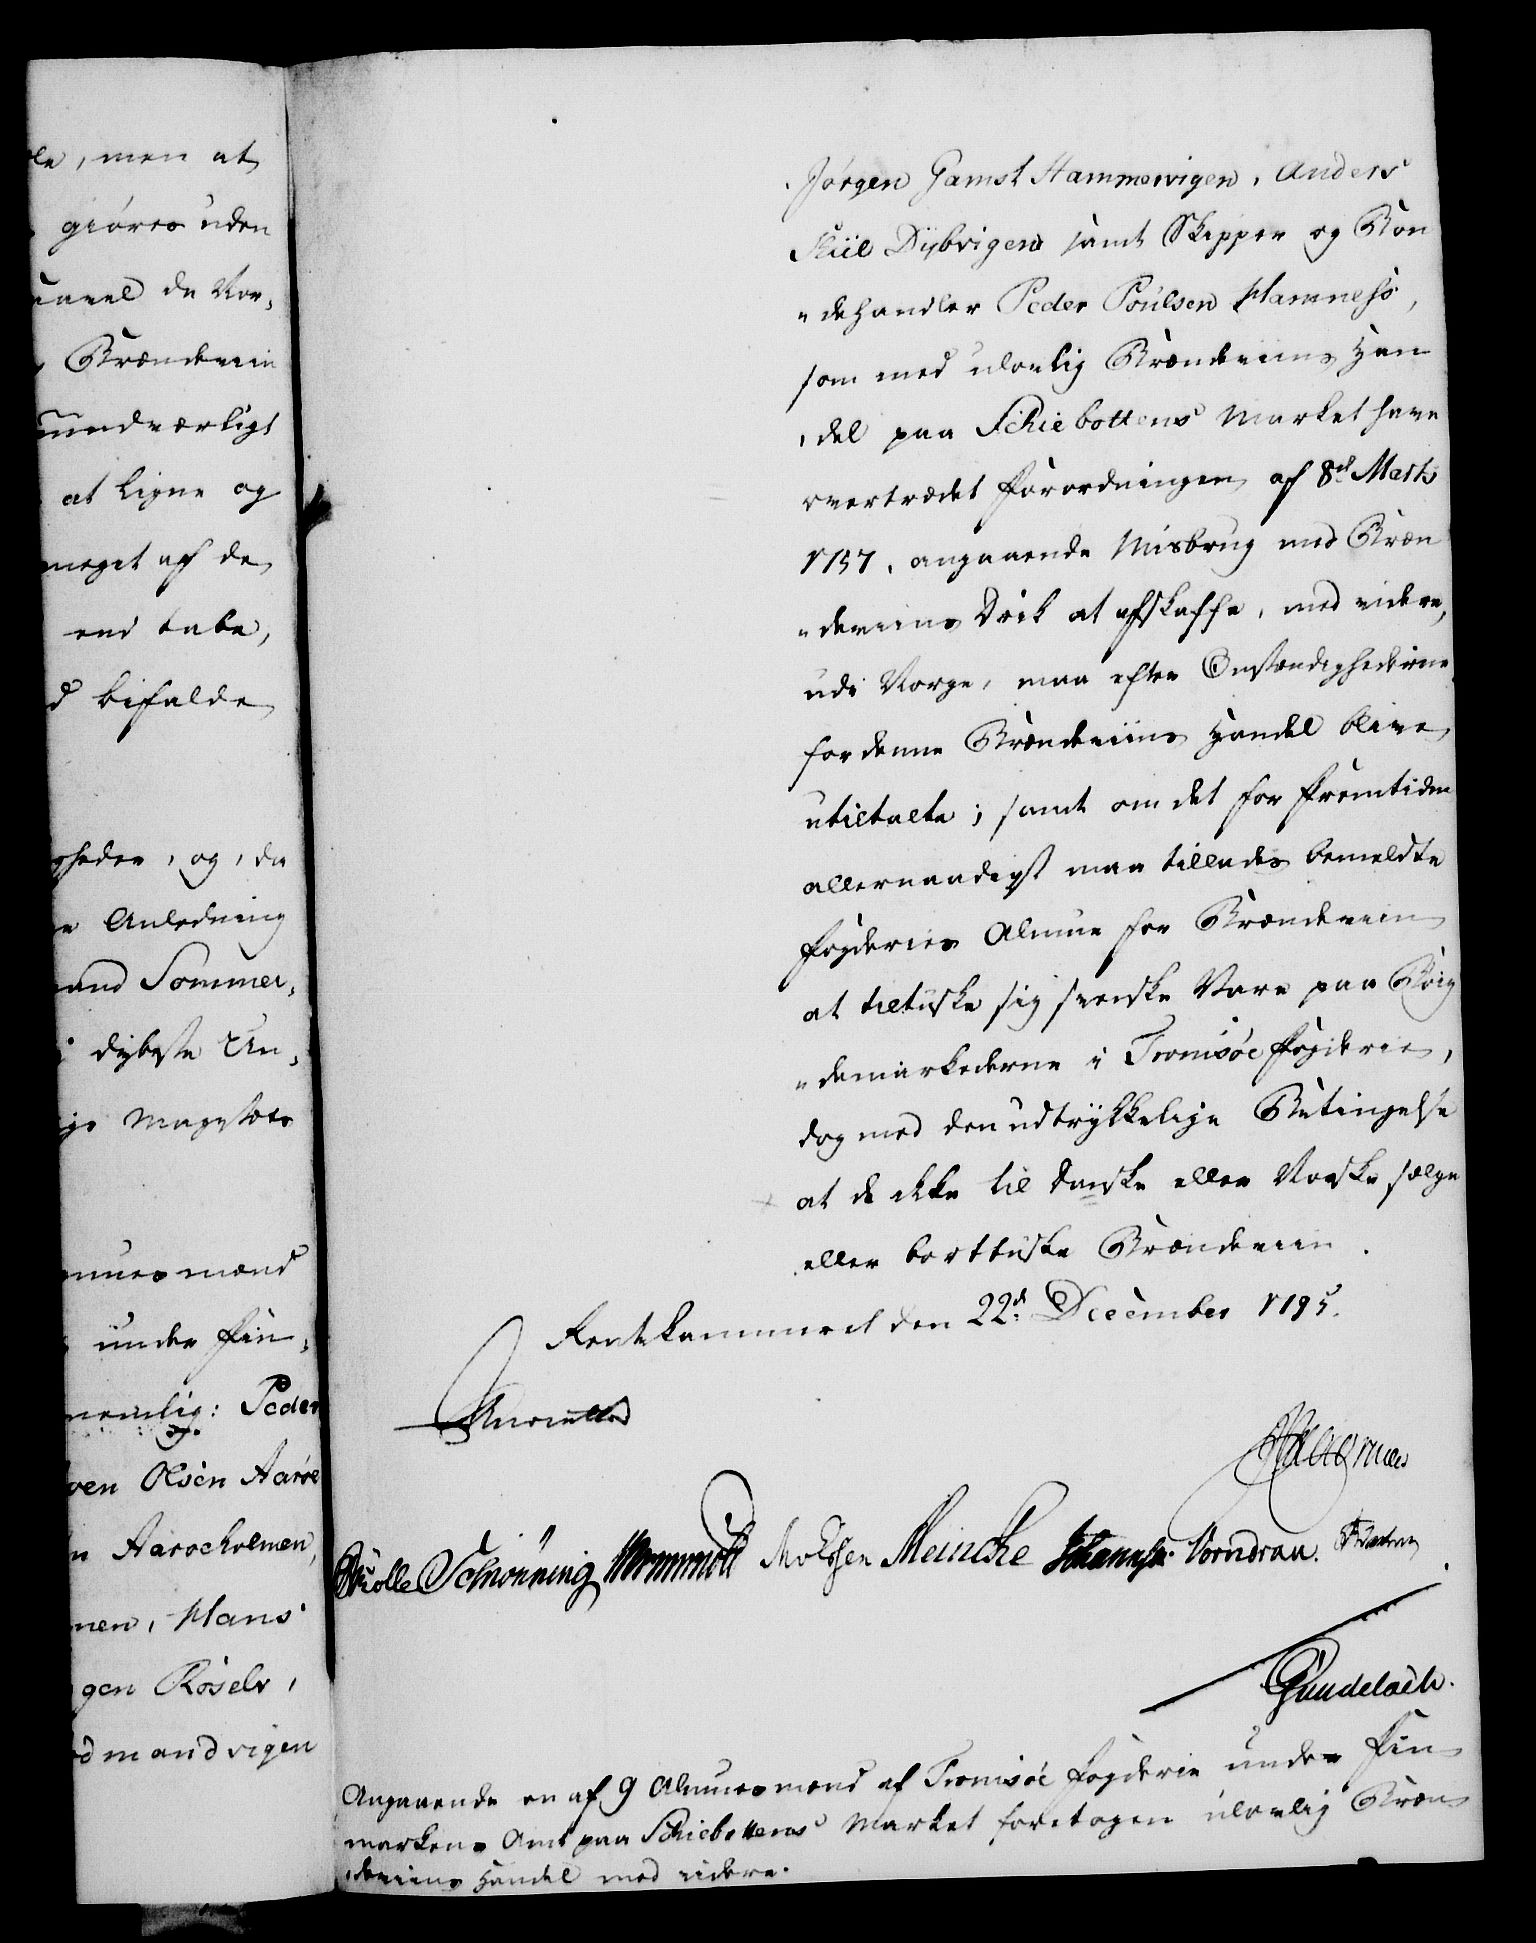 le, men at
giøres uden
saavel de Nor-
Brændeviin
uundværligt
at ligne og
meget af de
end tabe,
d bifalde
gheder, og, da
Anledning
and Sommer-
dybeste Un-
Mayestæts
muesmænd
under Fin-
nemlig: Peder
ven Olsen Aarøe
n Aaroeholmen,
men, Hans
gen Roselv,
dmandvigen
Jørgen Gamst Hammervigen, Anders
Kiil Dybvigen samt Skipper og Bon
"dehandler Peder Poulsen Hamness,
som med ulovlig Brændeviins Han
"del paa Schiebottens Market have
overtrædet Forordningen af 8de Marts
1757, angaaende Misbrug med Bræn
"deviins Drik at afskaffe, med videre,
udi Norge, maa efter Omstændighederne
for denne Brændeviins Handel blive
utiltalte; samt om det for Fremtiden
allernaadigst maa tillades bemeldte
Fogderies Almue for Brændeviin
at tiltuske sig svenske Vare paa Býg
"demarkederne i Tromsøe Fogderie,
dog med den udtrykkelige Betingelse
at de ikke til Danske eller Norske sælge
eller borttuske Brændeviin.
Rentekammeret den 22de December 1795.
Schønning Wormskiold Meincke Johannsen Vorndran.
Gundelach.
Angaaende en af 9 Almuesmænd af Tromsøe Fogderie under Fin
markens Amt paa Schiebottens Market foretagen ulovlig Bræn
"deviins Handel med videre.